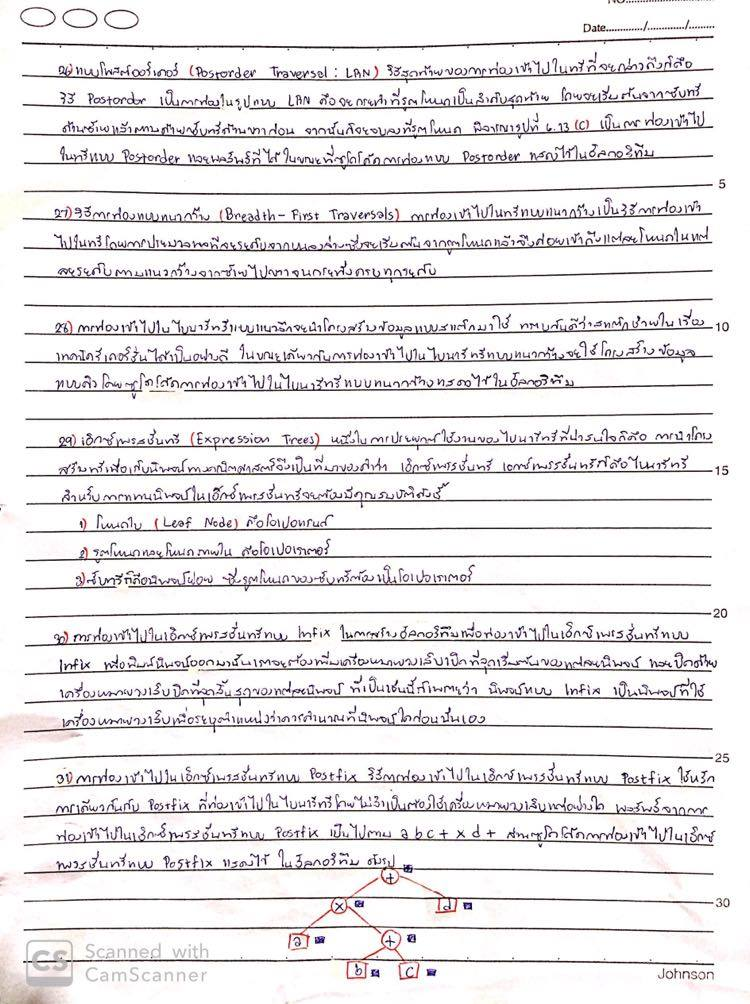 NO.
Date............/............/.........
26) แบบโพสต์ออร์เดอร์ (Postorder Traversal : LRN) วิธีสุดท้ายของการท่องเข้าไปในทรีที่จะกล่าวถึงก็คือ
วิธี Postorder เป็นการท่องในรูปแบบ LRN คือจะกระทำที่รูตโหนดเป็นลำดับสุดท้าย โดยจะเริ่มต้นจากซับทรี
ด้านซ้ายแล้วตามด้วยซับทรีด้านขวาก่อน จากนั้นก็จะจบลงที่รูตโหนด พิจารณารูปที่ 6.13 (C) เป็นการท่องเข้าไป
ในทรีแบบ Postorder และผลลัพธ์ที่ได้ ในขณะที่ซูโดโค้ดการท่องแบบ Postorder แสดงไว้ในอัลกอริทึม
5
27) วิธีการท่องแบบแนวกว้าง (Breadth-First Traversals) การท่องเข้าไปในทรีแบบแนวกว้างเป็นวิธีการท่องเข้า
ไปในทรีโดยการประมวลผลทีละระดับจากบนลงล่างซึ่งจะเริ่มต้นจากรูตโหนดแล้วจึงค่อยเข้าถึงแต่ละโหนดในแต่
ละระดับตามแนวกว้างจากซ้ายไปขวาจนกระทั่งครบทุกระดับ
28) การท่องเข้าไปในไบนารีทรีแบบแนวลึกจะนำโครงสร้างข้อมูลแบบสแต็กมาใช้ ทราบกันดีว่าสแต็กช่วยในเรื่อง
10
เทคนิครีเคอร์ชั่นได้เป็นอย่างดี ในขณะเดียวกันการท่องเข้าไปในไบนารีทรีแบบแนวกว้างจะใช้โครงสร้างข้อมูล
แบบคิวโดยซูโดโค้ดการท่องเข้าไปในไบนารีทรีแบบแนวกว้างแสดงไว้ในอัลกอริทึม
29) เอ็กซ์เพรสชั่นทรี (Expression Trees) หนึ่งในการประยุกต์ใช้งานของไบนารีทรีที่น่าสนใจก็คือ การนำโครง
สร้างทรีเพื่อเก็บนิพจน์ทางคณิตศาสตร์จึงเป็นที่มาของคำว่า เอ็กซ์เพรสชั่นทรี เอกซ์เพรสชั่นทรีก็คือไบนารีทรี
15
สำหรับการแทนนิพจน์ในเอ็กซ์เพรสชั่นทรีจะต้องมีคุณสมบัติดังนี้
1) โหนดใบ (Leaf Node) คือโอเปอแรนด์
2) รูตโหนดและโหนดภายใน คือโอเปอเรเตอร์
3) ซับทรีก็คือนิพจน์ย่อย ซึ่งรูตโหนดของซับทรีต้องเป็นโอเปอเรเตอร์
20
30) การท่องเข้าไปในเอ็กซ์เพรสชั่นทรีแบบ Infix ในการสร้างอัลกอริทึมเพื่อท่องเข้าไปในเอ็กซ์เพรสชั่นทรีแบบ
Infix เพื่อพิมพ์นิพจน์ออกมานั้นเราจะต้องเพิ่มเครื่องหมายวงเล็บเปิดที่จุดเริ่มต้นของแต่ละนิพจน์ และปิดด้วย
เครื่องหมายวงเล็บปิดที่จุดสิ้นสุดของแต่ละนิพจน์ ที่เป็นเช่นนี้ก็เพราะว่า นิพจน์แบบ Infix เป็นนิพจน์ที่ใช้
เครื่องหมายวงเล็บเพื่อระบุตำแหน่งว่าควรคำนวณที่นิพจน์ใดก่อนนั่นเอง
25
31) การท่องเข้าไปในเอ็กซ์เพรสชั่นทรีแบบ Postfix วิธีการท่องเข้าไปในเอ็กซ์เพรสชั่นทรีแบบ Postfix ใช้หลัก
การเดียวกันกับ Postfix ที่ท่องเข้าไปในไบนารีทรีโดยไม่จำเป็นต้องใช้เครื่องหมายวงเล็บแต่อย่างใด ผลลัพธ์จากการ
ท่องเข้าไปในเอ็กซ์เพรสชั่นทรีแบบ Postfix เป็นไปตาม a b c + x d + ส่วนซูโดโค้ดการท่องเข้าไปในเอ็กซ์
เพรสชั่นทรีแบบ Postfix แสดงไว้ ในอัลกอริทึม ดังรูป
+
30
x d
a +
b c
CS Scanned with
CamScanner
Johnson